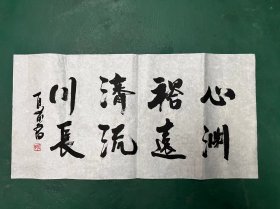 心渊
裕远
清流
川长